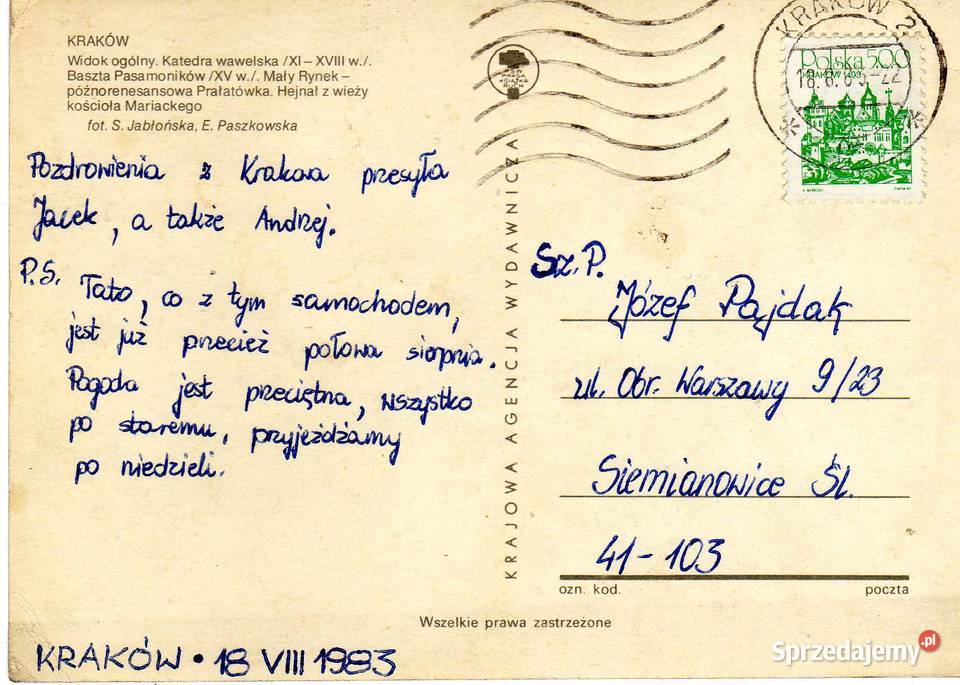 KRAKÓW
Widok ogólny. Katedra wawelska /XI – XVIII w./.
Baszta Pasamoników /XV w./. Mały Rynek –
późnorenesansowa Prałatówka. Hejnał z wieży
kościoła Mariackego
fot. S. Jabłońska, E. Paszkowska
Pozdrowienia z Krakowa przesyła
Jacek, a także Andrzej.
P.S. Tato, co z tym samochodem,
jest już przecież połowa sierpnia.
Pogoda jest przeciętna, wszystko
po staremu, przyjeżdżamy
po niedzieli.
KRAKÓW • 18 VIII 1983
RSW
PRASA
KSIĄŻKA
RUCH
KRAJOWA AGENCJA WYDAWNICZA
KRAKÓW 2
Polska 500
KRAKÓW 1493
Sz. P.
Józef Pajdak
ul. Obr. Warszawy 9/23
Siemianowice Śl.
41-103
ozn. kod. poczta
Wszelkie prawa zastrzeżone
Sprzedajemy.pl